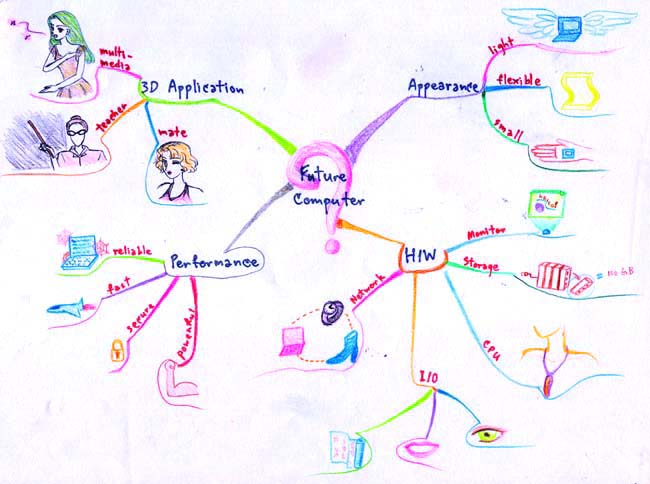 multi-
media
3D Application
teacher
mate
Appearance
light
flexible
small
Future
Computer
Performance
reliable
fast
secure
powerful
H/W
Monitor
Storage
CPU
Network
I/O